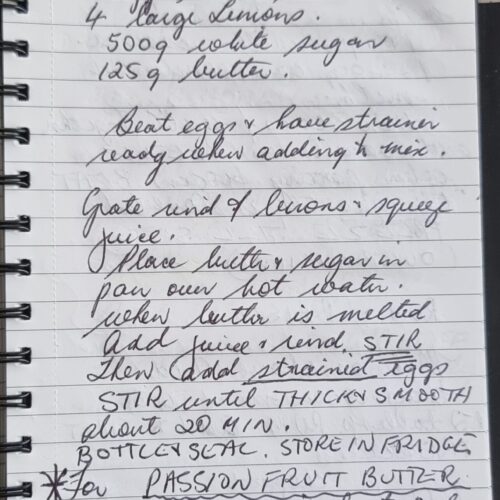 4 large Lemons.
500g white sugar
125g butter.
Beat eggs & have strainer
ready when adding to mix.
Grate rind of lemons & squeeze
juice.
Place butter & sugar in
pan over hot water.
when butter is melted
add juice & rind. STIR
Then add strained eggs
STIR until THICK & SMOOTH
about 20 MIN.
BOTTLE & SEAL. STORE IN FRIDGE
*For PASSION FRUIT BUTTER